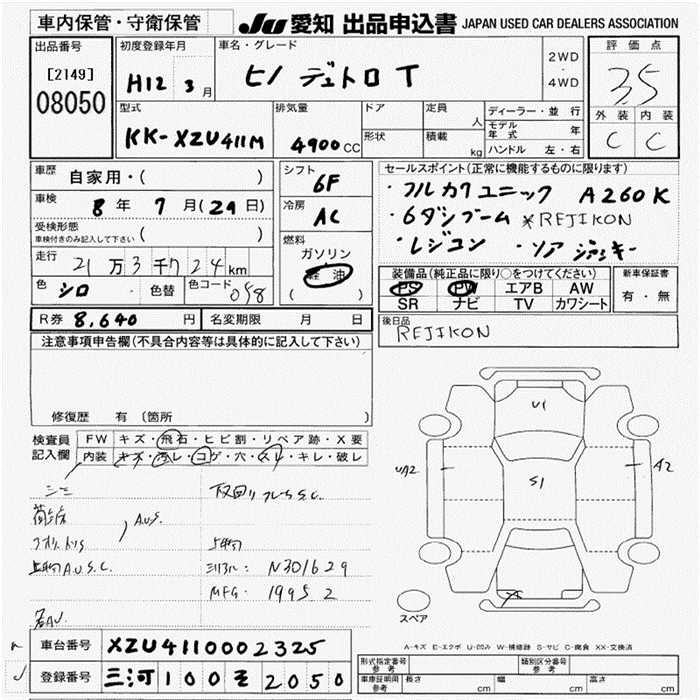 車内保管・守衛保管
JU 愛知 出品申込書 JAPAN USED CAR DEALERS ASSOCIATION
出品番号
[2149]
08050
初度登録年月
H12 3月
車名・グレード
ヒノ デュトロ T
2WD
・
4WD
評価点
3.5
外装 内装
C C
型式
KK-XZU411M
排気量
4900cc
ドア
形状
定員 人
積載 kg
ディーラー・並行
モデル年式 年
ハンドル 左・右
車歴
自家用・( )
車検
8年 7月(29日)
受検形態
車検付きのみ記入して下さい ( )
走行
21万3千724km
色 シロ 色替 色コード 058
シフト
6F
冷房
AC
燃料
ガソリン
軽油
( )
セールスポイント(正常に機能するものに限ります)
・フルカワユニック A260K
・6ダンブーム *REJIKON
・レジコン ・リアジャッキー
装備品(純正品に限り○をつけてください)
PS PW エアB AW
SR ナビ TV カワシート
新車保証書
有・無
R券 8,640円 名変期限 月 日
後日品
REJIKON
注意事項申告欄(不具合内容等は具体的に記入して下さい)
修復歴 有 (箇所 )
検査員
記入欄
FW キズ・飛石・ヒビ割・リペア跡・X要
内装 キズ・汚レ・コゲ・穴・スレ・キレ・破レ
A.U.S.
N301629
MFG: 1995 2
U1
S1
UA2
A2
スペア
A-キズ E-エクボ U-凹み W-補修跡 S-サビ C-腐食 XX-交換済
車台番号 XZU4110002325
登録番号 三河100そ2050
形式指定番号
参考
類別区分番号
参考
車庫証明用
参考
長さ cm 幅 cm 高さ cm